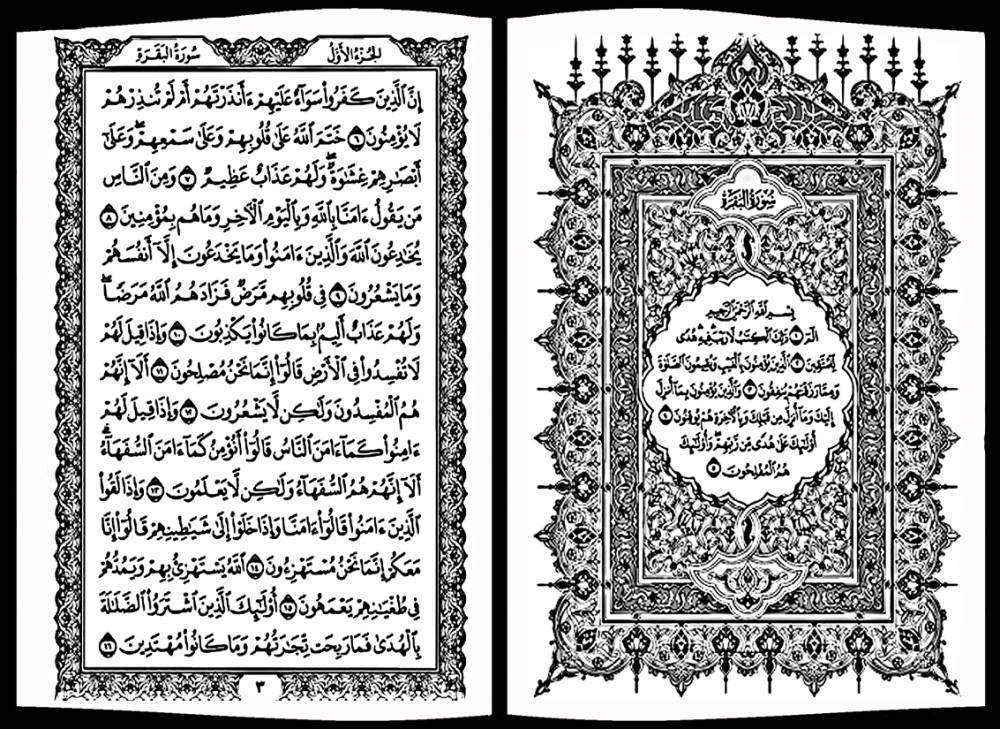 سُورَةُ البَقَرَةِ
بِسْمِ ٱللَّهِ ٱلرَّحْمَٰنِ ٱلرَّحِيمِ
الٓمٓ ١ ذَٰلِكَ ٱلْكِتَٰبُ لَا رَيْبَ ۛ فِيهِ ۛ هُدًى
لِّلْمُتَّقِينَ ٢ ٱلَّذِينَ يُؤْمِنُونَ بِٱلْغَيْبِ وَيُقِيمُونَ ٱلصَّلَوٰةَ
وَمِمَّا رَزَقْنَٰهُمْ يُنفِقُونَ ٣ وَٱلَّذِينَ يُؤْمِنُونَ بِمَآ أُنزِلَ
إِلَيْكَ وَمَآ أُنزِلَ مِن قَبْلِكَ وَبِٱلْءَاخِرَةِ هُمْ يُوقِنُونَ ٤
أُو۟لَٰٓئِكَ عَلَىٰ هُدًى مِّن رَّبِّهِمْ ۖ وَأُو۟لَٰٓئِكَ
هُمُ ٱلْمُفْلِحُونَ ٥
الجُزْءُ الأَوَّلُ
سُورَةُ البَقَرَةِ
إِنَّ ٱلَّذِينَ كَفَرُوا۟ سَوَآءٌ عَلَيْهِمْ ءَأَنذَرْتَهُمْ أَمْ لَمْ تُنذِرْهُمْ
لَا يُؤْمِنُونَ ٦ خَتَمَ ٱللَّهُ عَلَىٰ قُلُوبِهِمْ وَعَلَىٰ سَمْعِهِمْ ۖ وَعَلَىٰٓ
أَبْصَٰرِهِمْ غِشَٰوَةٌ ۖ وَلَهُمْ عَذَابٌ عَظِيمٌ ٧ وَمِنَ ٱلنَّاسِ
مَن يَقُولُ ءَامَنَّا بِٱللَّهِ وَبِٱلْيَوْمِ ٱلْءَاخِرِ وَمَا هُم بِمُؤْمِنِينَ ٨
يُخَٰدِعُونَ ٱللَّهَ وَٱلَّذِينَ ءَامَنُوا۟ وَمَا يَخْدَعُونَ إِلَّآ أَنفُسَهُمْ
وَمَا يَشْعُرُونَ ٩ فِى قُلُوبِهِم مَّرَضٌ فَزَادَهُمُ ٱللَّهُ مَرَضًا ۖ
وَلَهُمْ عَذَابٌ أَلِيمٌۢ بِمَا كَانُوا۟ يَكْذِبُونَ ١٠ وَإِذَا قِيلَ لَهُمْ
لَا تُفْسِدُوا۟ فِى ٱلْأَرْضِ قَالُوٓا۟ إِنَّمَا نَحْنُ مُصْلِحُونَ ١١ أَلَآ إِنَّهُمْ
هُمُ ٱلْمُفْسِدُونَ وَلَٰكِن لَّا يَشْعُرُونَ ١٢ وَإِذَا قِيلَ لَهُمْ
ءَامِنُوا۟ كَمَآ ءَامَنَ ٱلنَّاسُ قَالُوٓا۟ أَنُؤْمِنُ كَمَآ ءَامَنَ ٱلسُّفَهَآءُ ۗ
أَلَآ إِنَّهُمْ هُمُ ٱلسُّفَهَآءُ وَلَٰكِن لَّا يَعْلَمُونَ ١٣ وَإِذَا لَقُوا۟
ٱلَّذِينَ ءَامَنُوا۟ قَالُوٓا۟ ءَامَنَّا وَإِذَا خَلَوْا۟ إِلَىٰ شَيَٰطِينِهِمْ قَالُوٓا۟ إِنَّا
مَعَكُمْ إِنَّمَا نَحْنُ مُسْتَهْزِءُونَ ١٤ ٱللَّهُ يَسْتَهْزِئُ بِهِمْ وَيَمُدُّهُمْ
فِى طُغْيَٰنِهِمْ يَعْمَهُونَ ١٥ أُو۟لَٰٓئِكَ ٱلَّذِينَ ٱشْتَرَوُا۟ ٱلضَّلَٰلَةَ
بِٱلْهُدَىٰ فَمَا رَبِحَت تِّجَٰرَتُهُمْ وَمَا كَانُوا۟ مُهْتَدِينَ ١٦
٣